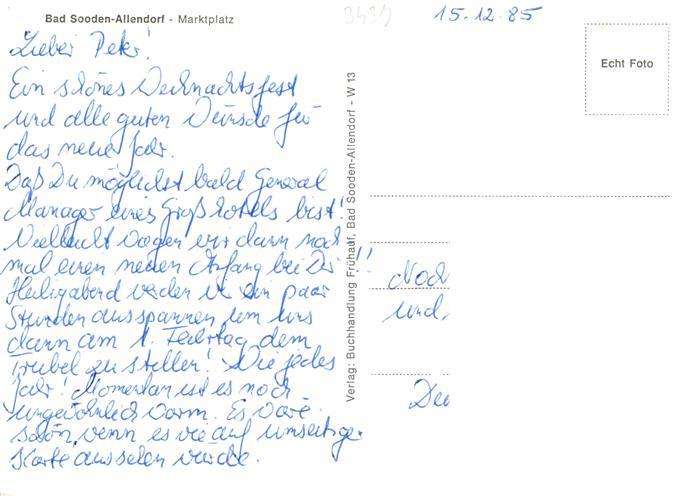 Bad Sooden-Allendorf - Marktplatz
15.12.85
Echt Foto
Lieber Peter!
Ein schönes Weihnachtsfest
und alle guten Wünsche für
das neue Jahr.
Daß Du möglichst bald General
Manager eines Großhotels bist!
Vielleicht wagen wir dann noch
mal einen neuen Anfang bei Dir!!
Heiligabend werden wir ein paar
Stunden ausspannen um uns
dann am 1. Feiertag dem
Trubel zu stellen! Wie jedes
Jahr! Momentan ist es noch
ungewöhnlich warm. Es wäre
schön, wenn es wie auf umseitiger
Karte aussehen würde.
Verlag: Buchhandlung Frühauf, Bad Sooden-Allendorf - W 13
Noch
und